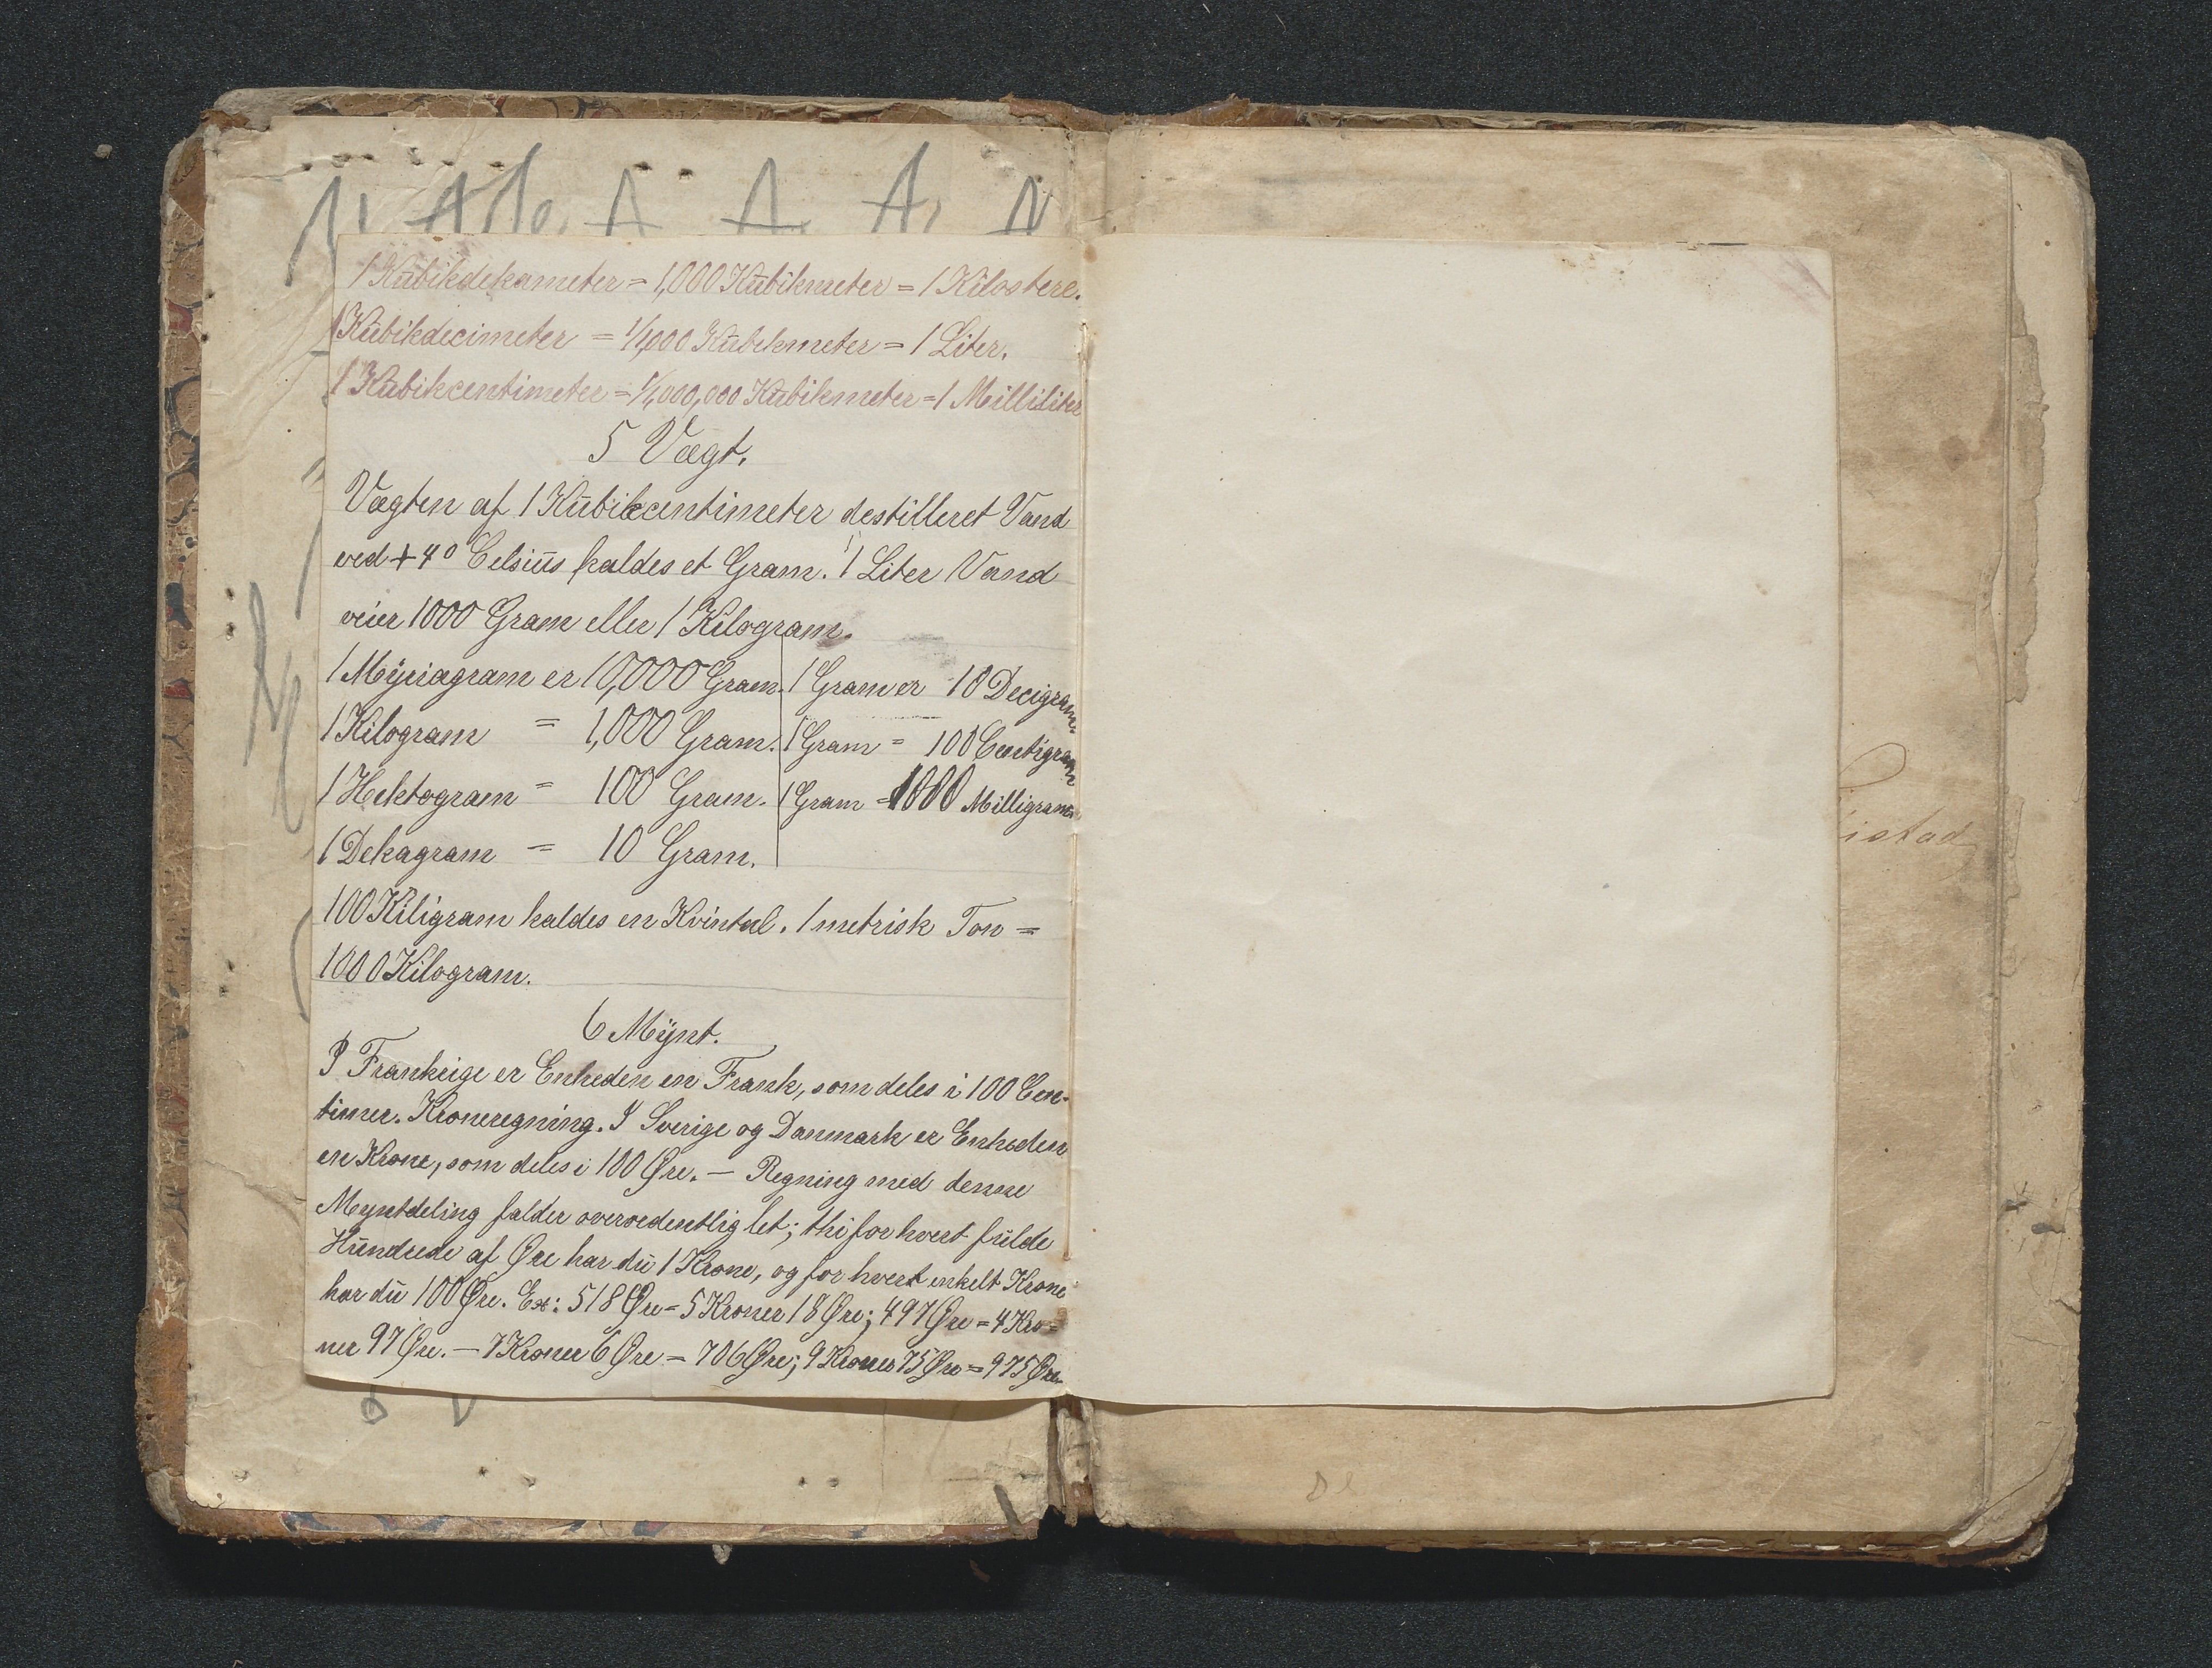 1 Kŭbikdekameter = 1,000 Kŭbikmeter = 1 Kilostere.
1 Kŭbikdecimeter = 1/1,000 Kŭbikmeter = 1 Liter.
1 Kŭbikcentimeter = 1/1,000,000 Kŭbikmeter = 1 Milliliter
5 Vægt.
Vægten af 1 Kŭbikcentimeter destilleret Vand
ved + 4° Celsiŭs kaldes et Gram. 1 Liter Vand
veier 1000 Gram eller 1 Kilogram.
1 Mÿriagram er 10,000 Gram. 1 Gram er 10 Decigram.
1 Kilogram = 1,000 Gram. 1 Gram = 100 Centigram
1 Hektogram = 100 Gram. 1 Gram = 1000 Milligram.
1 Dekagram = 10 Gram.
100 Kiligram kaldes en Kvintal. 1 metrisk Ton =
1000 Kilogram.
6 Mÿnt.
I Frankrige er Enheden en Frank, som deles i 100 Cen-
timer. Kroneregning. I Sverige og Danmark er Enheden
en Krone, som deles i 100 Øre. — Regning med denne
Myntdeling falder overordentlig let; thi for hvert fŭlde
Hŭndrede af Øre har dŭ 1 Krone, og for hvert enkelt Krone
har dŭ 100 Øre. Ex: 518 Øre = 5 Kroner 18 Øre; 497 Øre = 4 Kro=
ner 97 Øre. — 7 Kroner 6 Øre = 706 Øre; 9 Kroner 75 Øre = 975 Øre.
istad